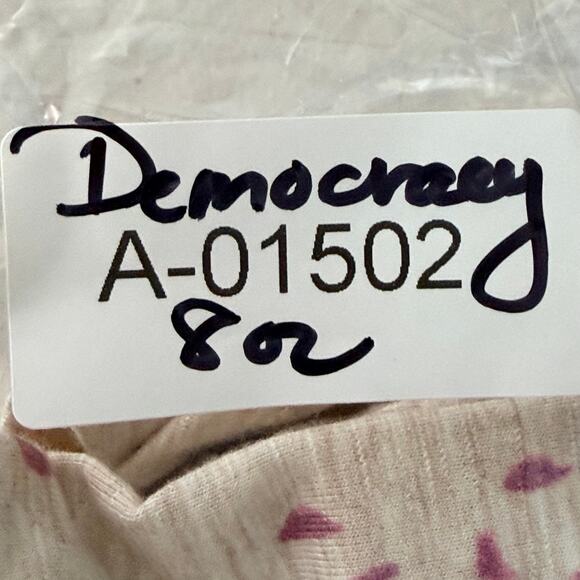 Democracy
A-01502
8oz